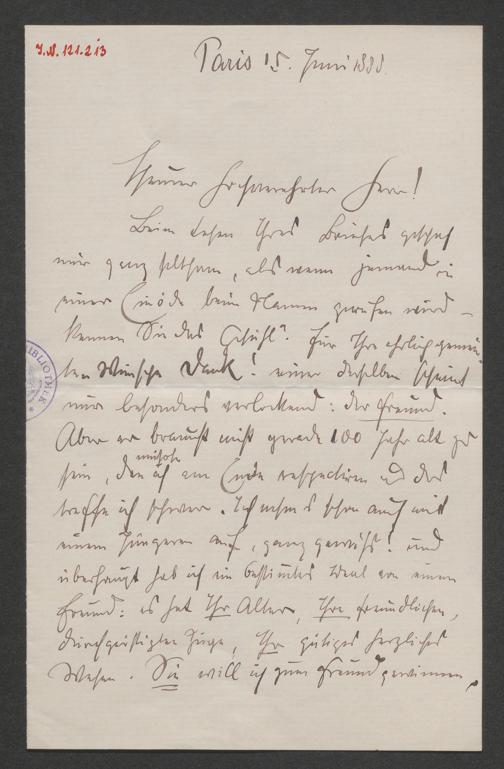 J.N. 121.213
Paris 15. Juni 1888.
hochverehrter Herr!
Beim Lesen Ihres Briefes geschah
mir ganz seltsam, als wenn jemand in
einer Einöde beim Namen gerufen wird –
kennen Sie das Gefühl? Für Ihre ehrlich gemein-
ten Wünsche Dank! einer derselben scheint
mir besonders verlockend: der Freund.
Aber er braucht nicht gerade 100 Jahr alt zu
sein, den müßte ich am Ende respectiren und das
treffe ich schwer. Ich nehm's schon auch mit
einem Jüngeren auf, ganz gewiß! und
überhaupt hab ich ein bestimmtes Ideal von einem
Freund: es hat Ihr Alter, Ihre freundlichen,
durchgeistigten Züge, Ihr gütiges herzliches
Wesen. Sie will ich zum Freund gewinnen,
BIBLIOTHEK